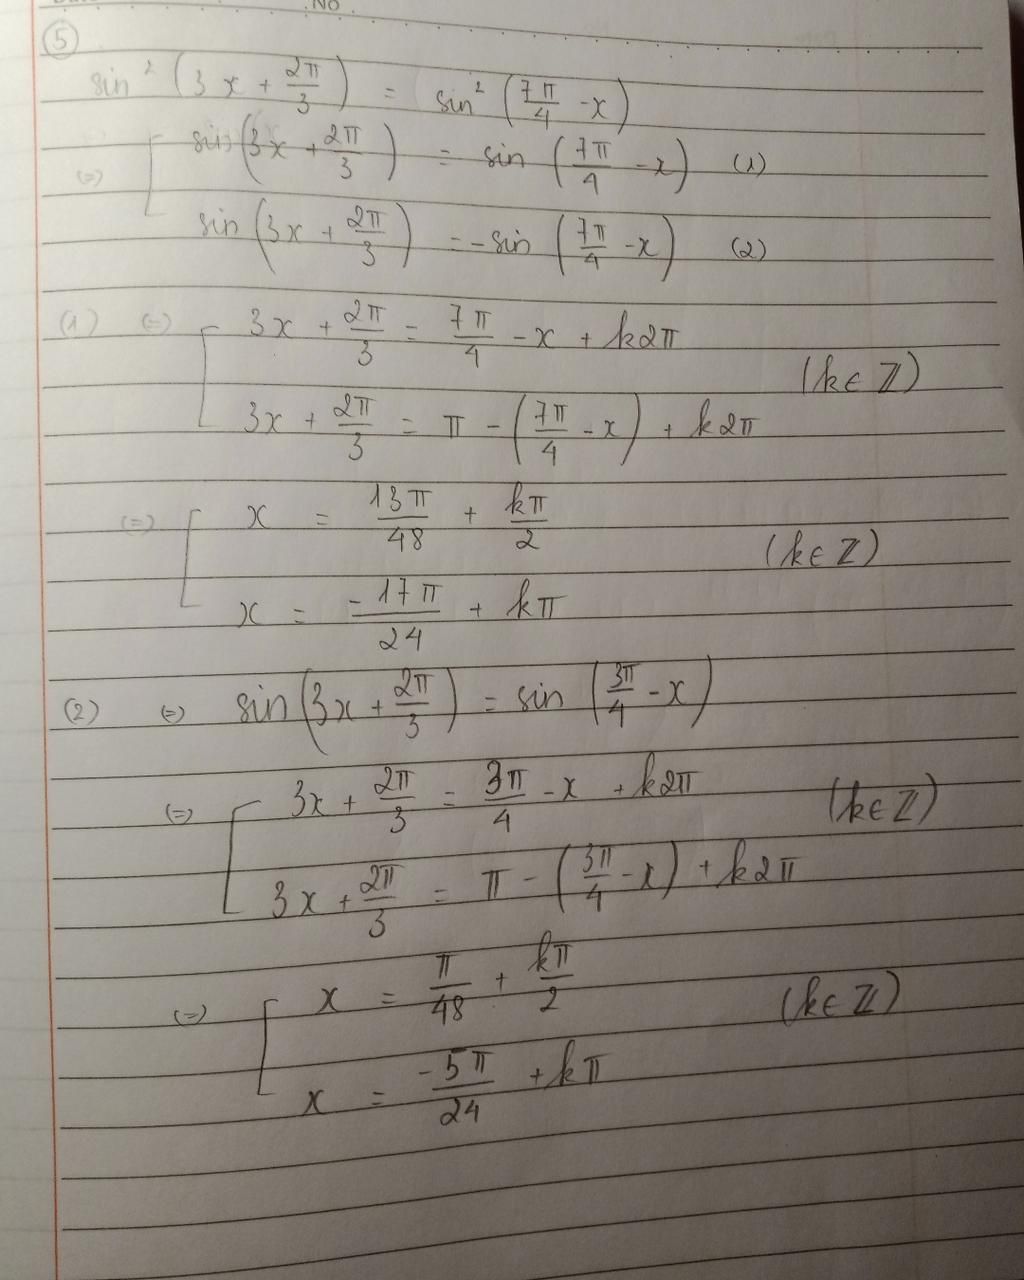 No
⑤
sin² (3x + 2π/3) = sin² (7π/4 - x)
(=) [ sin (3x + 2π/3) = sin (7π/4 - x) (1)
sin (3x + 2π/3) = - sin (7π/4 - x) (2)
(1) (=) [ 3x + 2π/3 = 7π/4 - x + k2π
(k ∈ ℤ)
3x + 2π/3 = π - (7π/4 - x) + k2π
(=) [ x = 13π/48 + kπ/2
(k ∈ ℤ)
x = -17π/24 + kπ
(2) (=) sin (3x + 2π/3) = sin (3π/4 - x)
(=) [ 3x + 2π/3 = 3π/4 - x + k2π (k ∈ ℤ)
3x + 2π/3 = π - (3π/4 - x) + k2π
(=) [ x = π/48 + kπ/2 (k ∈ ℤ)
x = -5π/24 + kπ